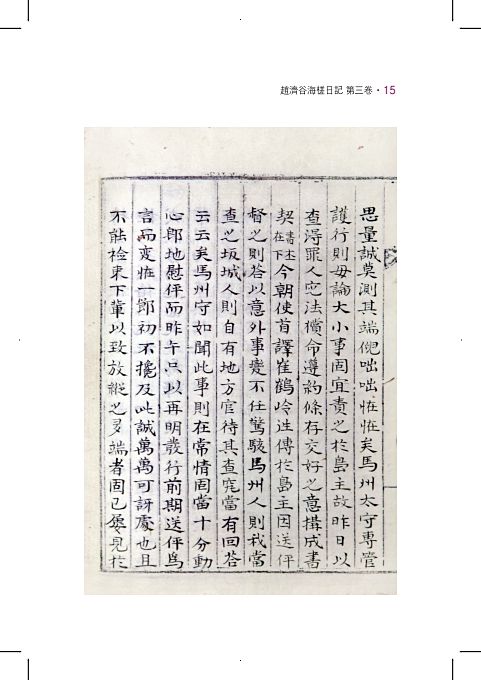 趙濟谷海槎日記 第三卷 · 15
思量誠莫測其端倪咄咄恠恠矣馬州太守專管
護行則毋論大小事固宜責之於島主故昨日以
查得罪人㝎法償命遵約條存交好之意搆成書
契書本在下今朝使首譯崔鶴岭迬傳於島主因送伻
督之則答以意外事變不任驚駭馬州人則我當
查之坂城人則自有地方官待其查究當有回答
云云矣馬州守如聞此事則在常情固當十分動
心郎地慰伻而昨午只以再明發行前期送伻為
言而變恠一節初不擾及此誠萬萬可訝處也且
不能檢束下輩以致放縱之多端者固已屢見於